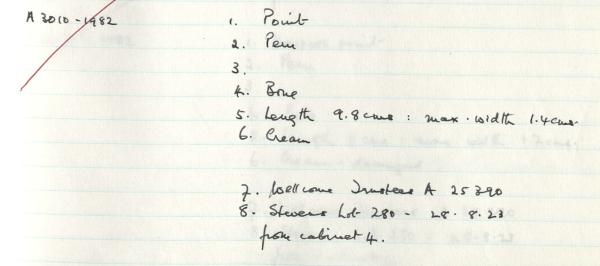 A 3010 - 1982
1. Point
2. Peru
3.
4. Bone
5. Length 9.8 cms : max. width 1.4 cms.
6. Cream
7. Wellcome Trustees A 25390
8. Stevens Lot 280 - 28.8.23
from cabinet 4.